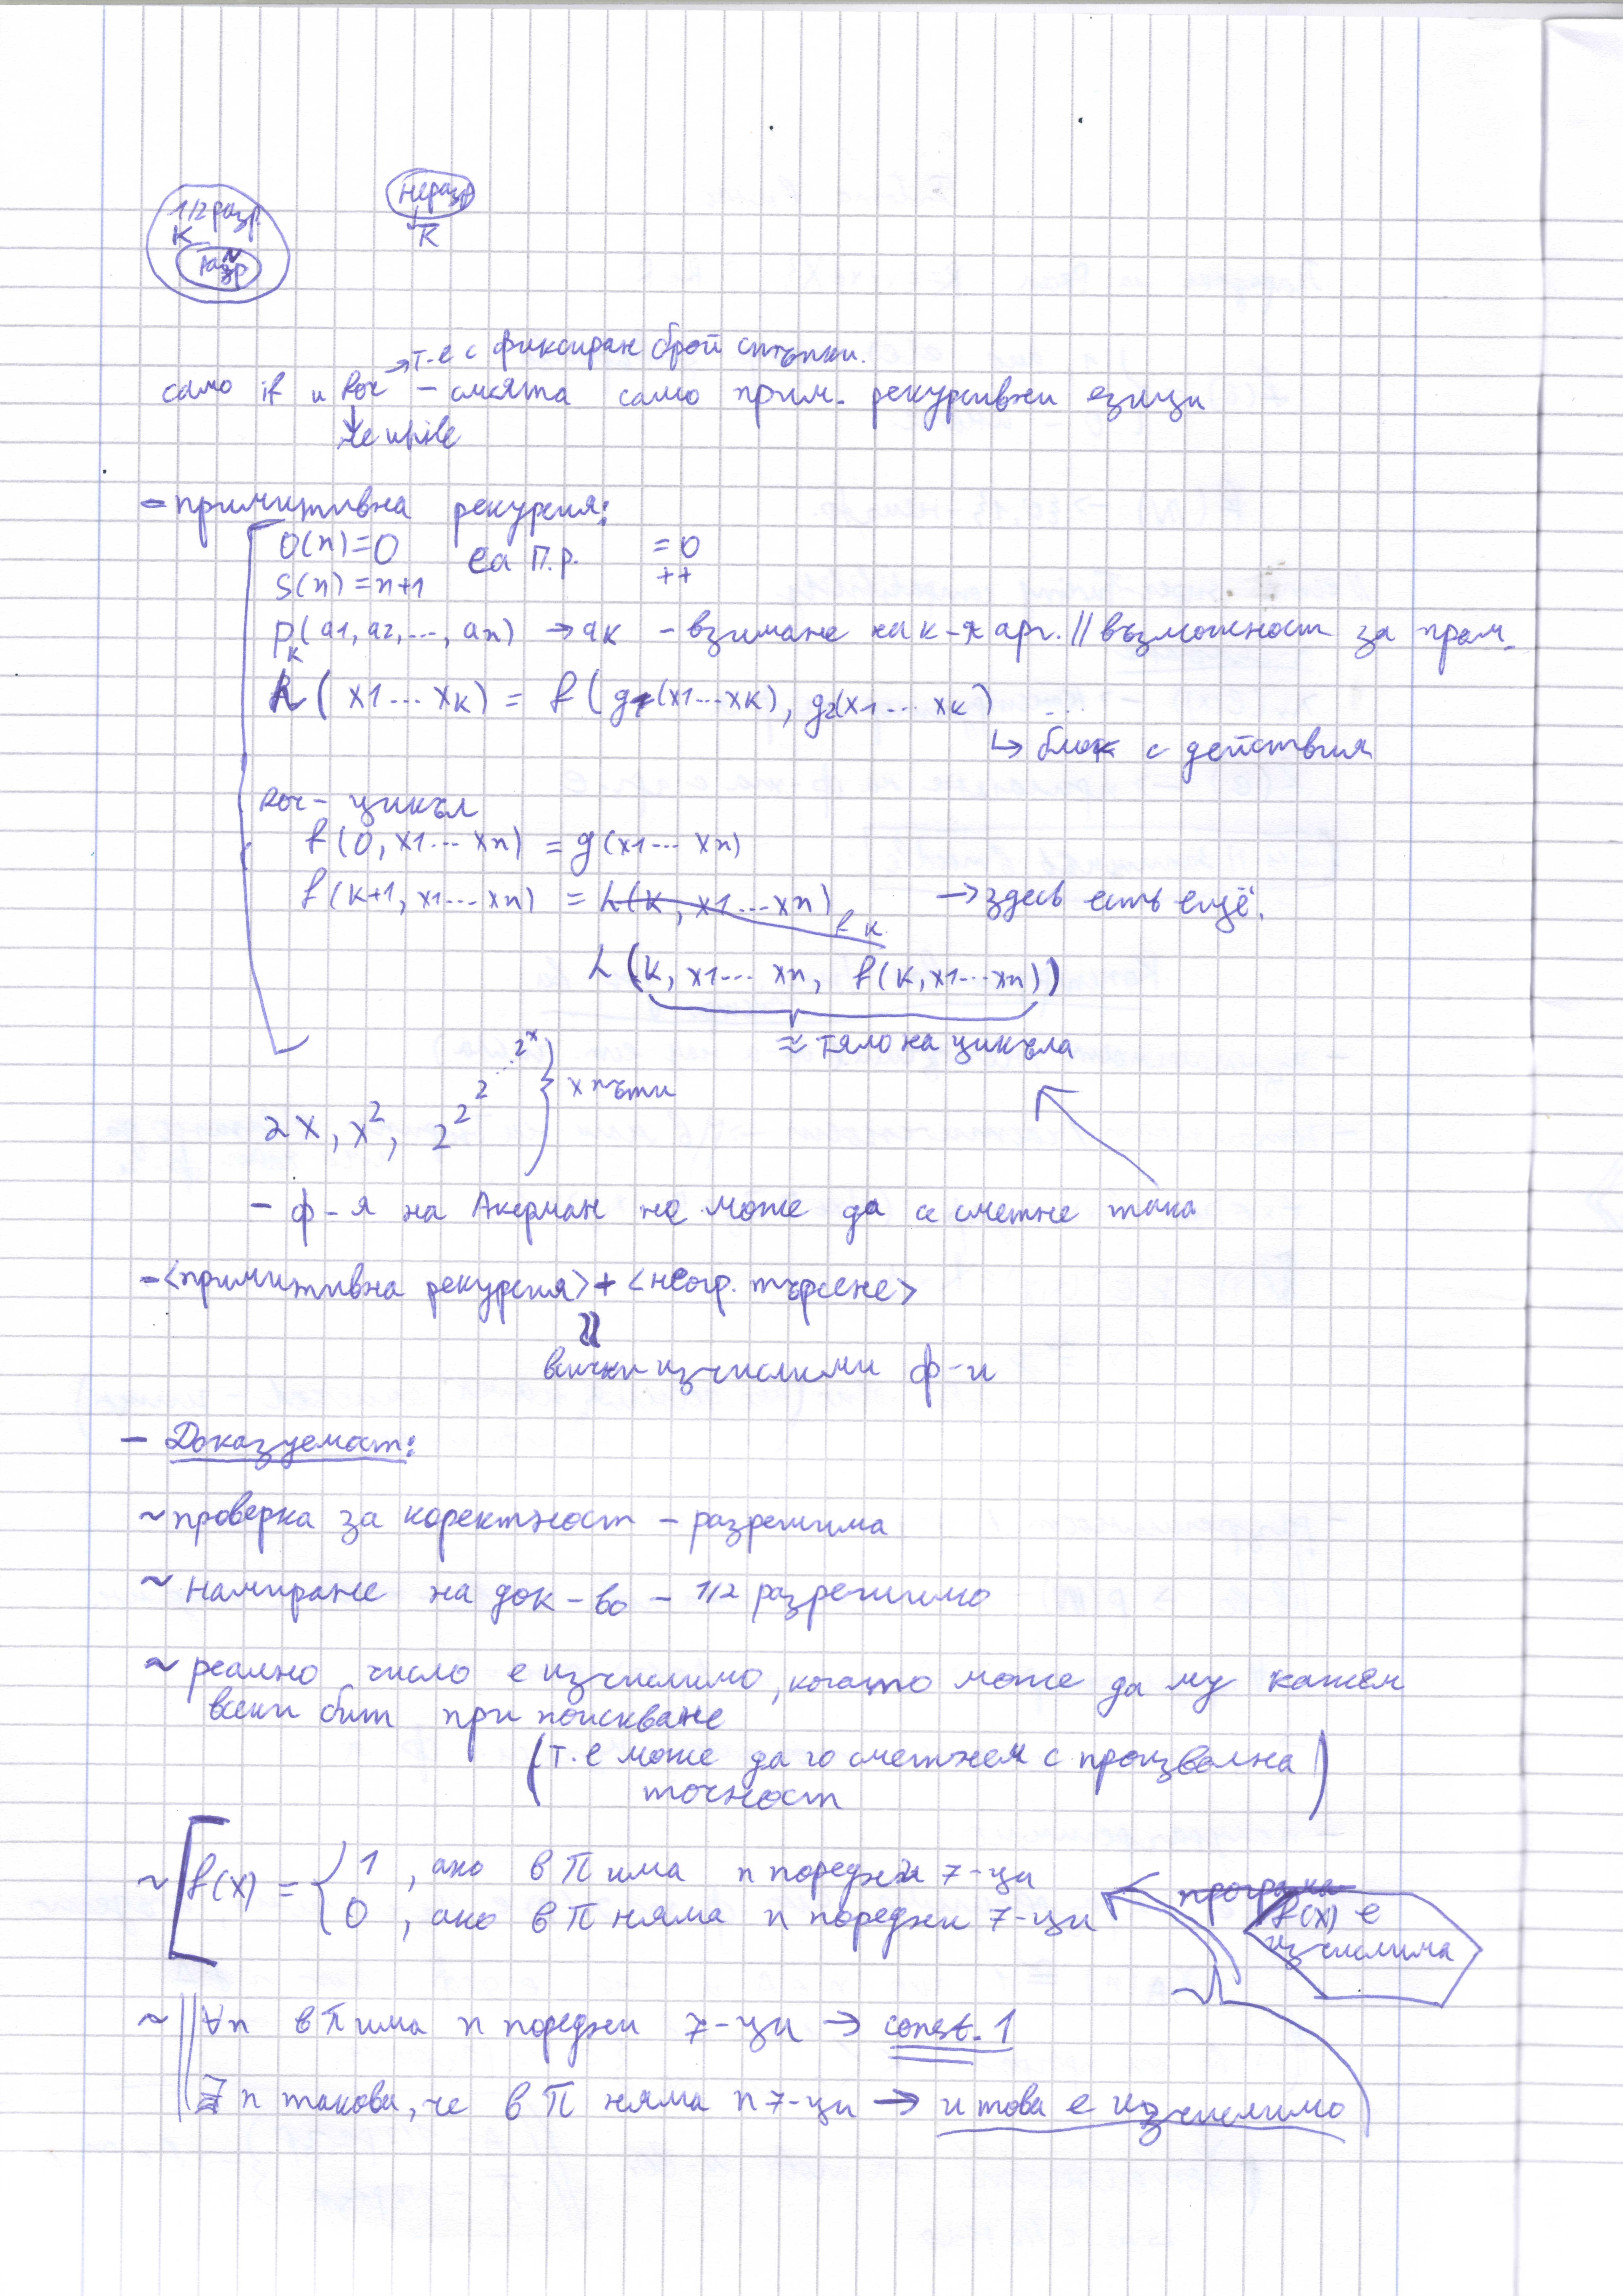 1/2 разр.
K
разр
неразр
K̅
→ т.е с фиксиран брой стъпки.
само if и for – смята само прим. рекурсивни езици
↓
не while
– примитивна рекурсия:
O(n)=0 са П.р. =0
S(n)=n+1 ++
Pk(a1, a2, ..., an) → ak – взимане на k-я арг. // възможност за пром.
h(x1...xk) = f(g1(x1...xk), g2(x1...xk) ...
↳ блок с действия
for – цикъл
f(0, x1...xn) = g(x1...xn)
f(k+1, x1...xn) = h(k, x1...xn) → здесь есть ещё.
f k
h(k, x1...xn, f(k, x1...xn))
≈ тяло на цикъла
2x, x², 2^2^2^...^2^x } x пъти
– ф-я на Акерман не може да се сметне така
– <примитивна рекурсия> + <неогр. търсене>
||
всички изчислими ф-и
– Доказуемост:
~ проверка за коректност – разрешима
~ намиране на док-во – 1/2 разрешимо
~ реално число е изчислимо, когато може да му кажем
всеки бит при поискване
(т.е може да го сметнем с произволна
точност)
~ [ f(x) = { 1, ако в π има n поредни 7-ци
0, ако в π няма n поредни 7-ци
← програма
f(x) е
изчислима
~ || ∀n в π има n поредни 7-ци → const. 1
∃ n такова, че в π няма n 7-ци → и това е изчислимо